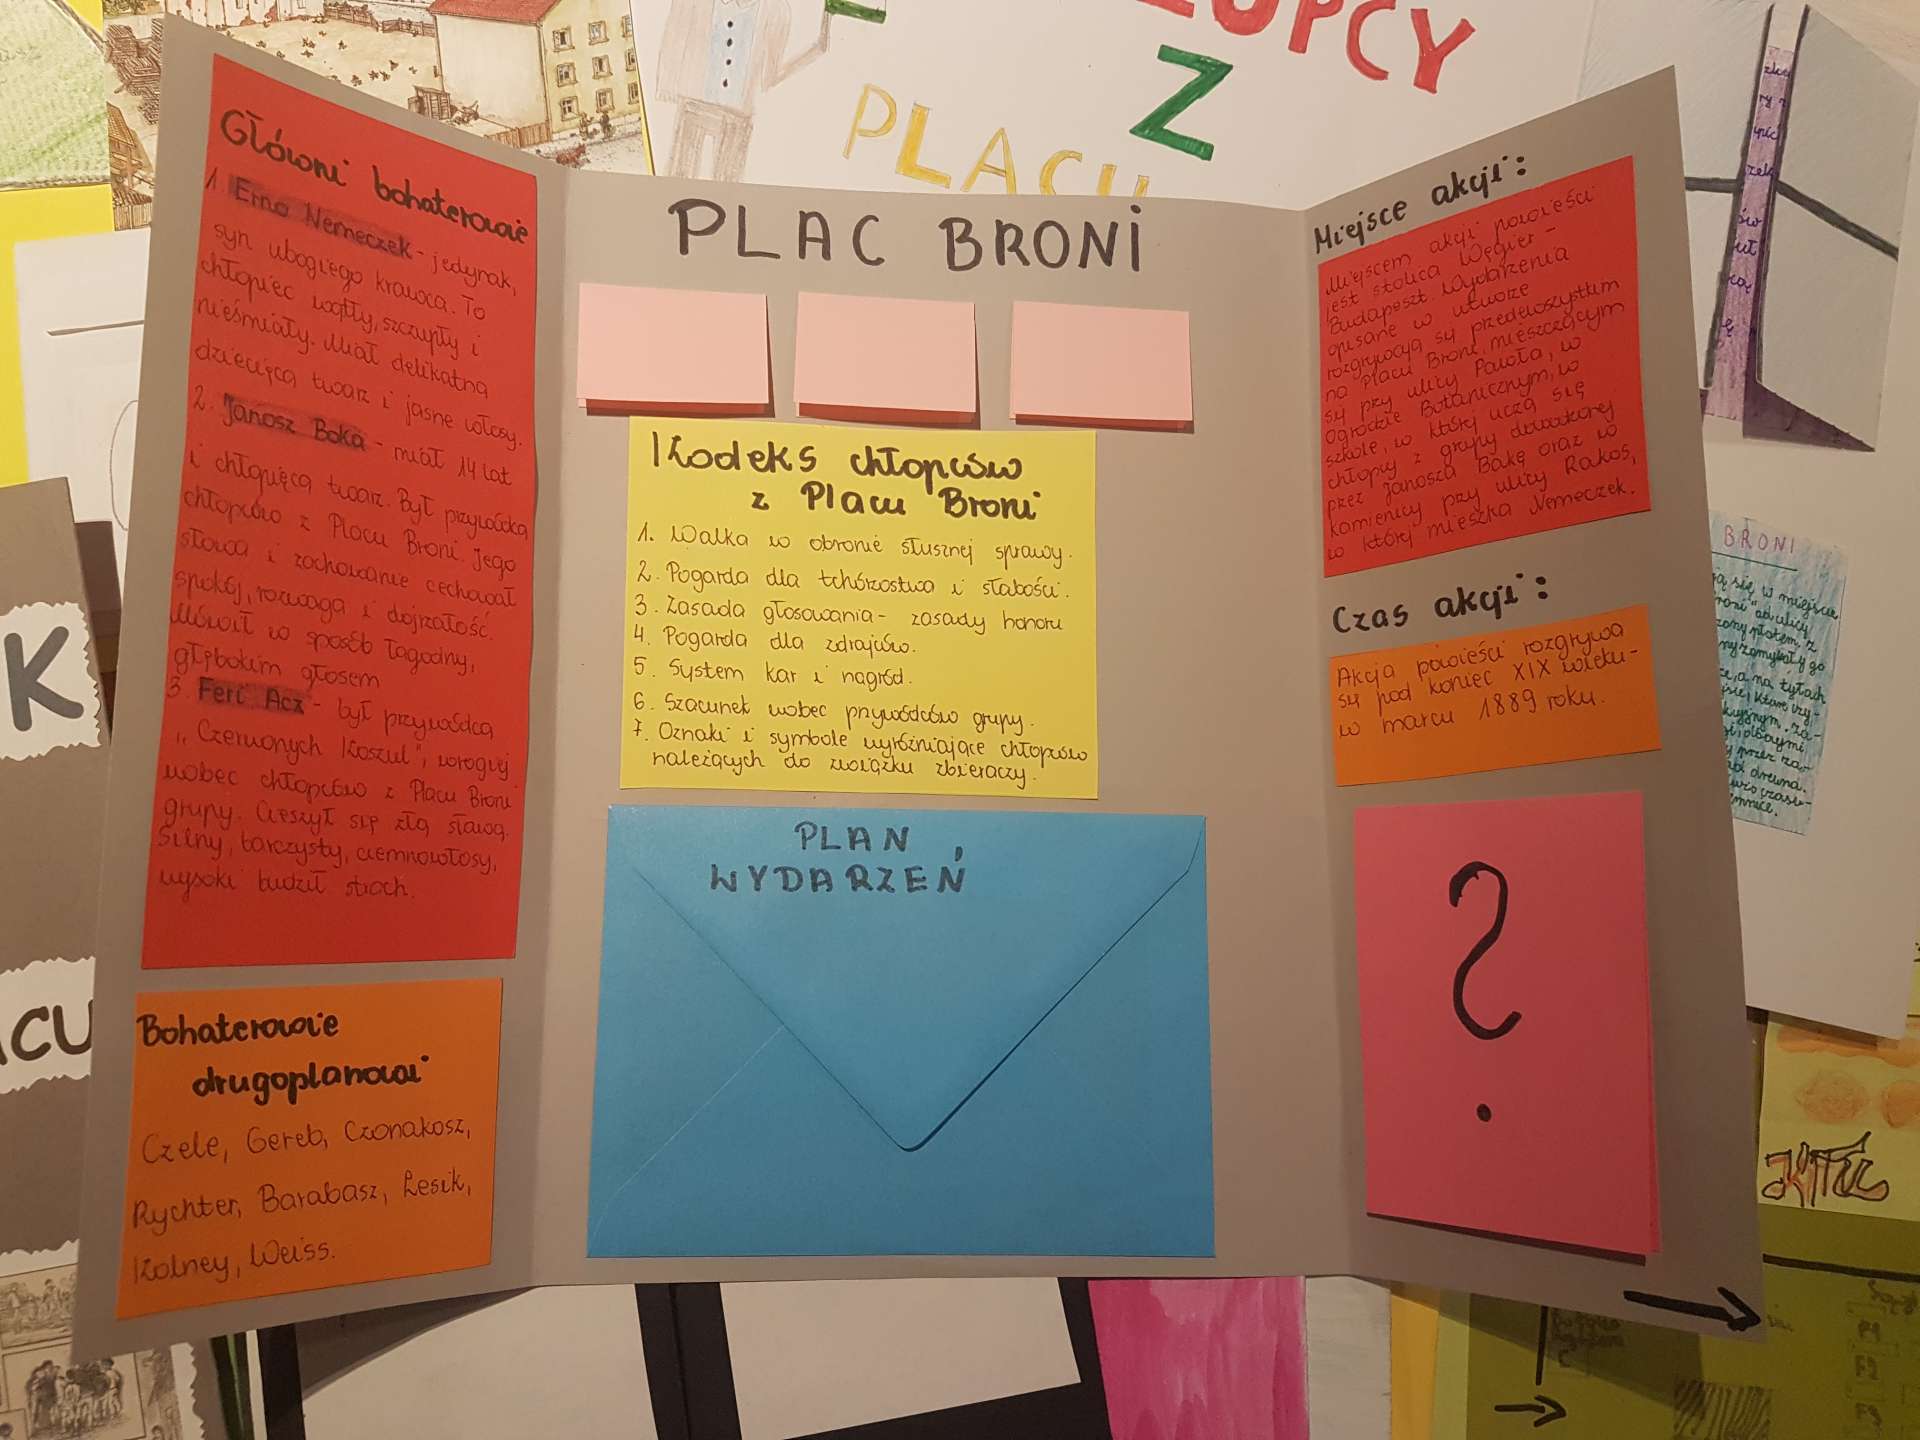 Główni bohaterowie
1. Erno Nemeczek - jedynak,
syn ubogiego krawca. To
chłopiec wątły, szczupły i
nieśmiały. Miał delikatną
dziecięcą twarz i jasne włosy.
2. Janosz Boka - miał 14 lat
i chłopięcą twarz. Był przywódcą
chłopców z Placu Broni. Jego
słowa i zachowanie cechował
spokój, rozwaga i dojrzałość.
Mówił w sposób łagodny,
głębokim głosem
3. Feri Acz - był przywódcą
„Czerwonych Koszul", wrogiej
wobec chłopców z Placu Broni
grupy. Cieszył się złą sławą.
Silny, barczysty, ciemnowłosy,
wysoki budził strach.
Bohaterowie
drugoplanowi
Czele, Gereb, Czonakosz,
Rychter, Barabasz, Lesik,
Kolney, Weiss.
PLAC BRONI
Kodeks chłopców
z Placu Broni
1. Walka w obronie słusznej sprawy.
2. Pogarda dla tchórzostwa i słabości.
3. Zasada głosowania - zasady honoru
4. Pogarda dla zdrajców.
5. System kar i nagród.
6. Szacunek wobec przywódców grupy.
7. Oznaki i symbole wyróżniające chłopców
należących do związku zbieraczy.
PLAN
WYDARZEŃ
Miejsce akcji:
Miejscem akcji powieści
jest stolica Węgier -
Budapeszt. Wydarzenia
opisane w utworze
rozgrywają się przedewszystkim
na Placu Broni, mieszczącym
się przy ulicy Pawła, w
Ogrodzie Botanicznym, w
szkole, w której uczą się
chłopcy z grupy dowodzonej
przez Janosza Bokę oraz w
kamienicy przy ulicy Rakos,
w której mieszka Nemeczek.
Czas akcji:
Akcja powieści rozgrywa
się pod koniec XIX wieku -
w marcu 1889 roku.
?
ŁOPCY
Z
PLACU
K
ACU
BRONI
się w miejscu
F1
F2
F3